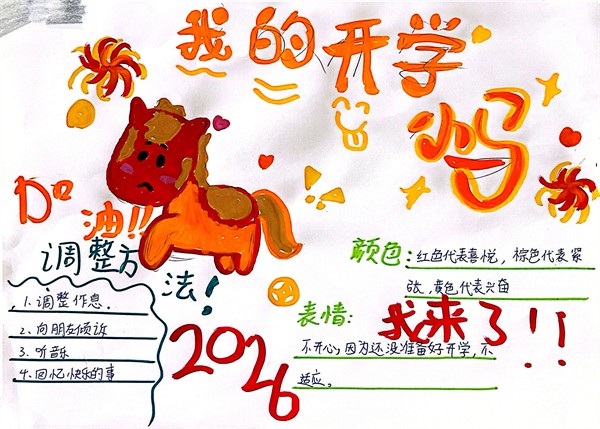 我的开学
小马
加油!!
调整方法!
1.调整作息.
2、向朋友倾诉
3、听音乐
4、回忆快乐的事
颜色:红色代表喜悦，棕色代表紧
张,黄色代表兴奋
表情:
不开心,因为还没准备好开学,不
适应。
2026
我来了!!